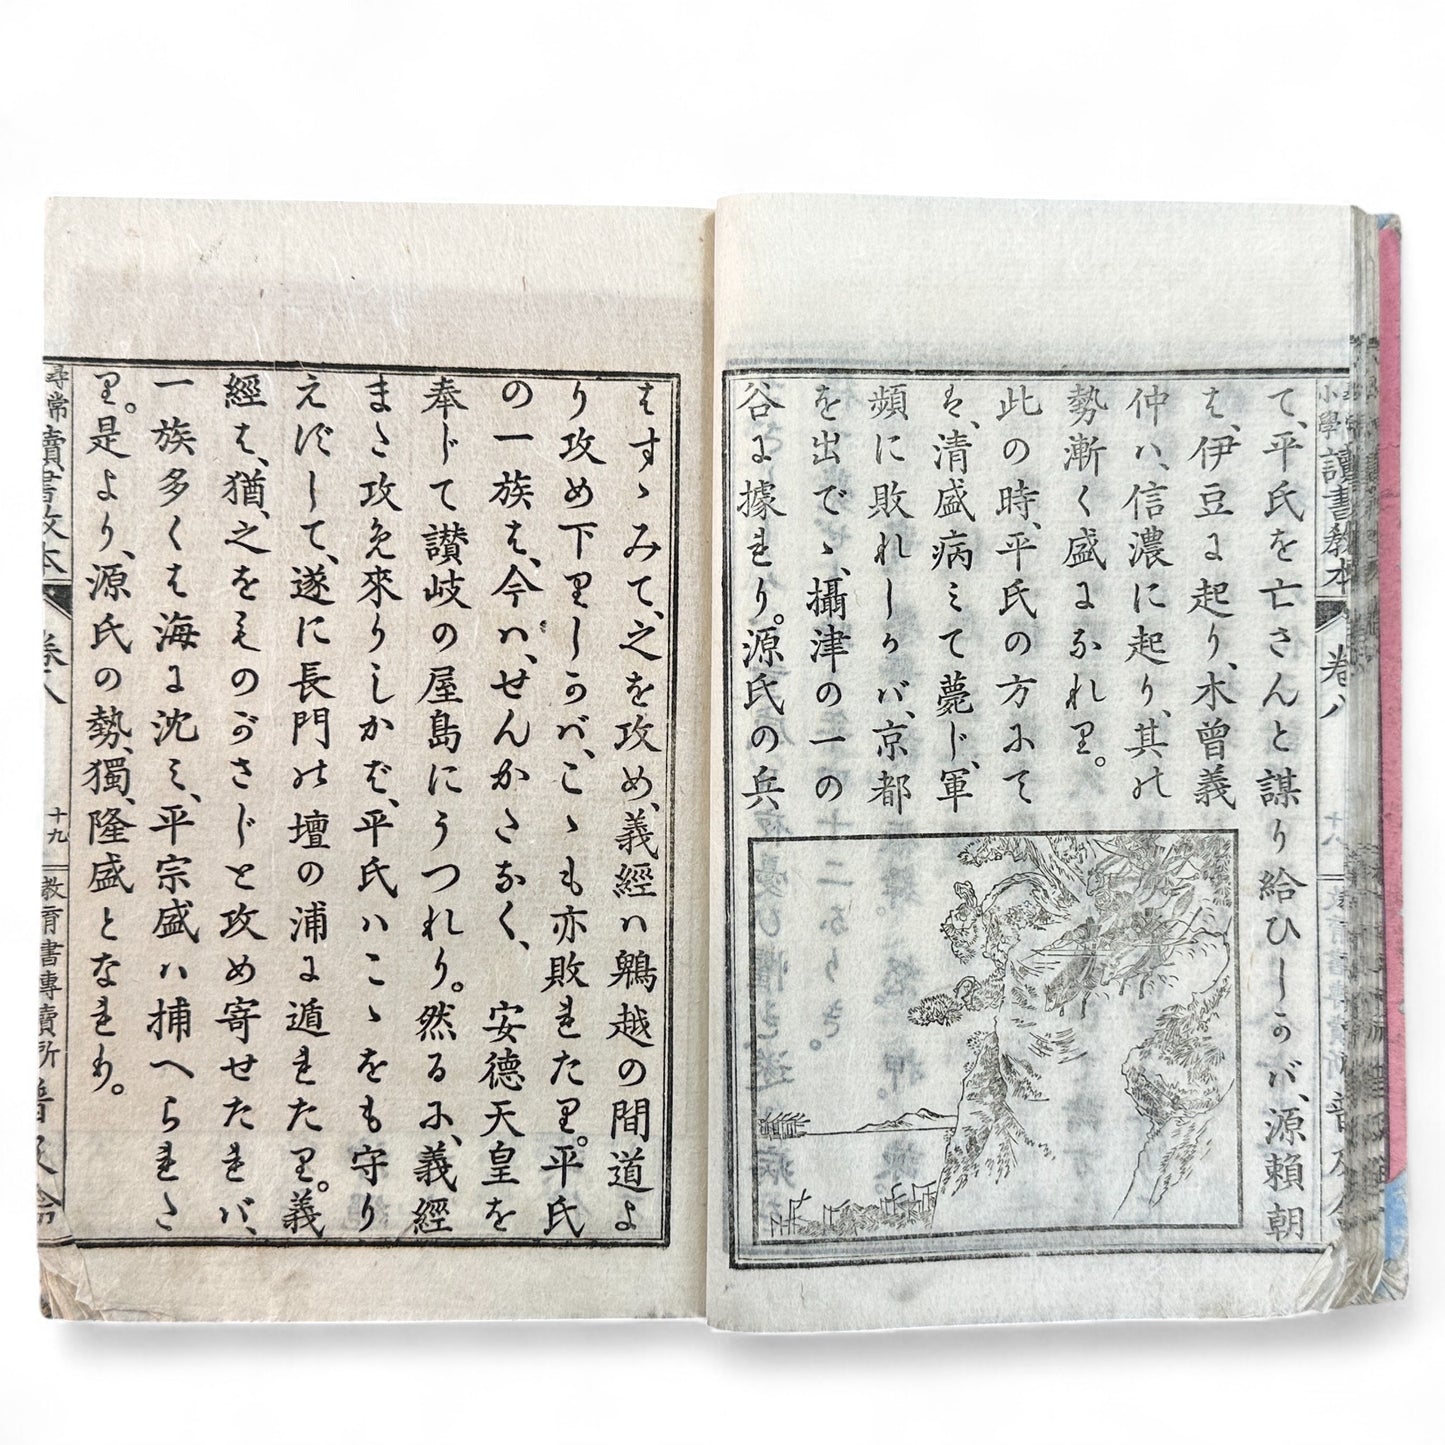 て、平氏を亡さんと謀り給ひしかバ、源賴朝
は、伊豆に起り、木曾義
仲ハ、信濃に起り、其の
勢漸く盛になれり。
此の時、平氏の方にて
は、清盛病みて薨じ、軍
頻に敗れしかバ、京都
を出でゝ、攝津の一の
谷に據れり。源氏の兵
小學讀書教本
卷八
十八
はすゝみて、之を攻め、義經ハ鵯越の間道よ
り攻め下りしかバ、こゝも亦敗れたり。平氏
の一族は、今ハ、せんかたなく、安德天皇を
奉じて讃岐の屋島にうつれり。然るに、義經
また攻め來りしかば、平氏ハこゝをも守り
えずして、遂に長門の壇の浦に遁れたり。義
經は、猶、之をものがさじと攻め寄せたれバ、
一族多くは海に沈み、平宗盛ハ捕へられた
り。是より、源氏の勢、獨、隆盛となれり。
尋常讀書教本
卷八
十九
教育書專賣所
普及舍